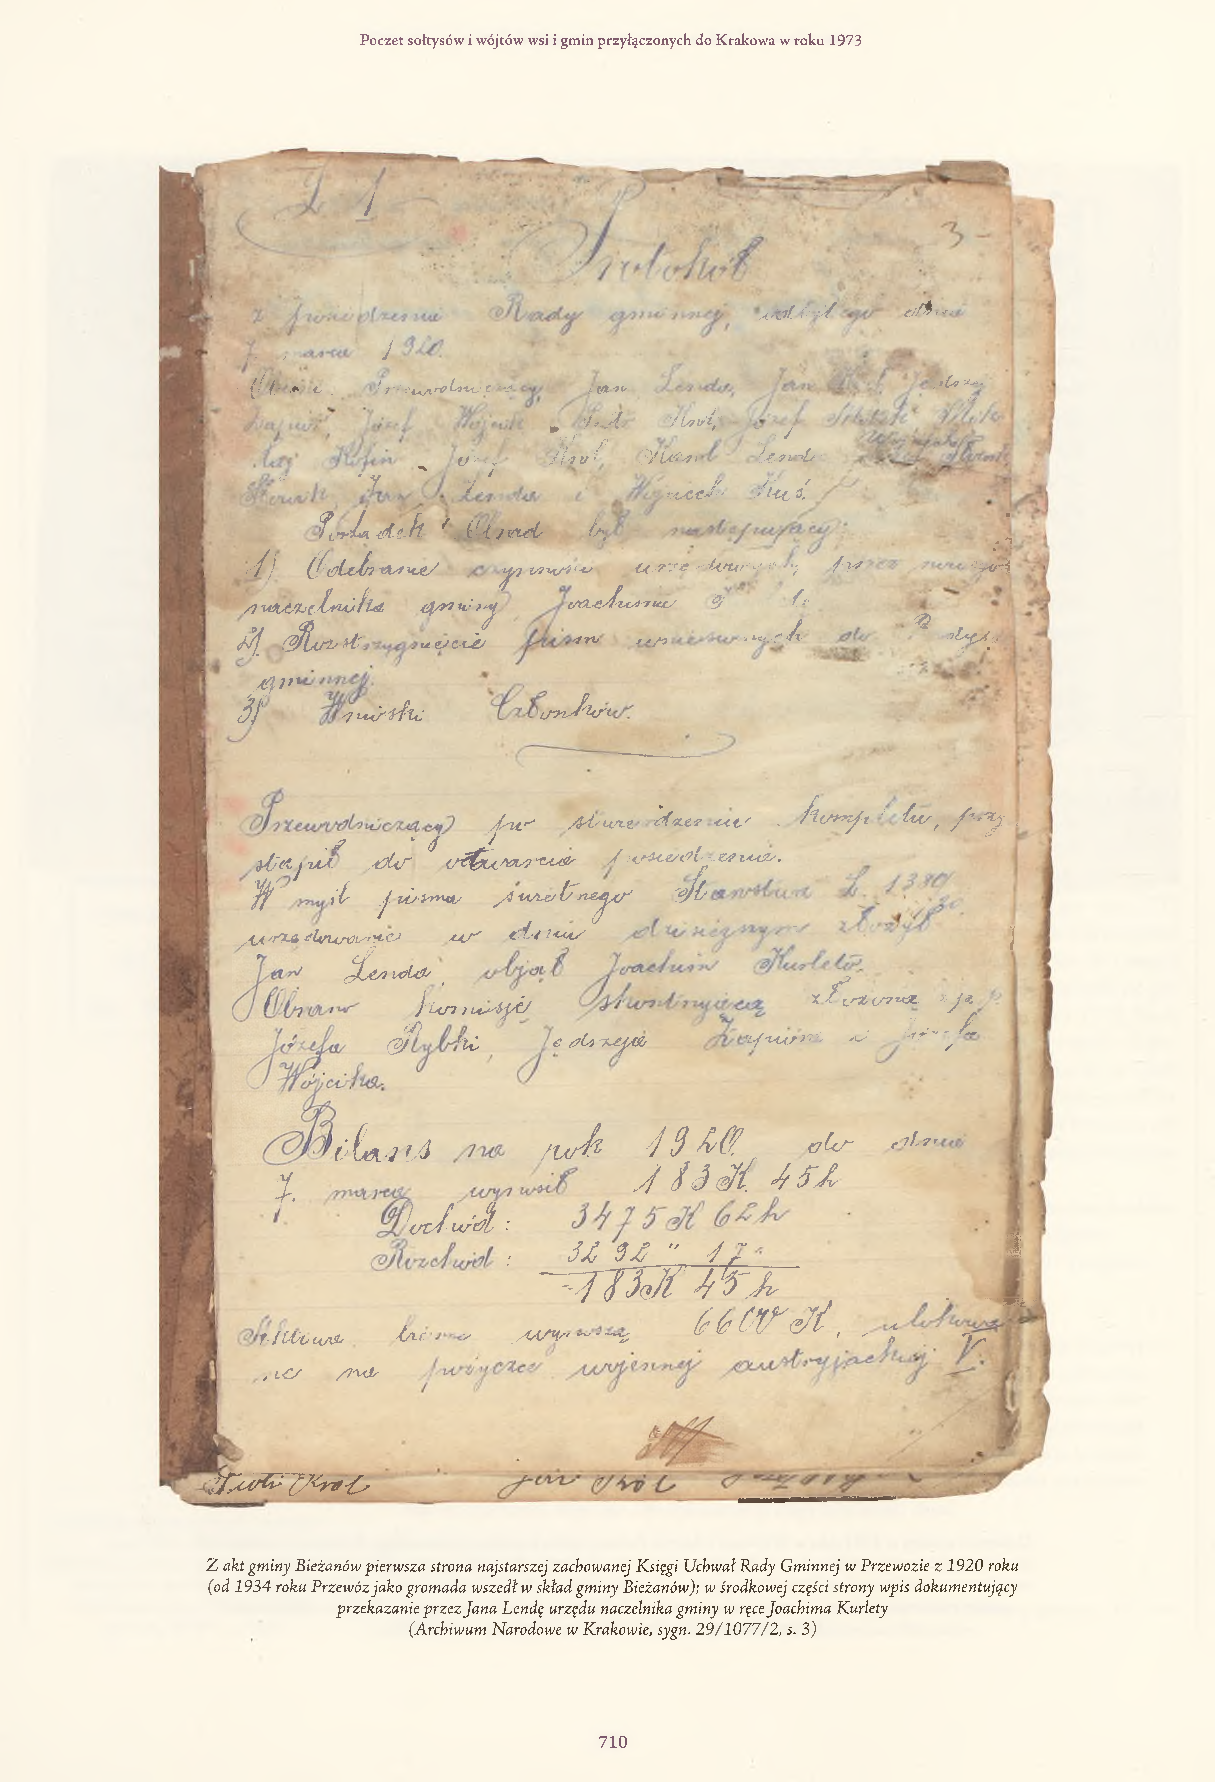 Poczet sołtysów i wójtów wsi i gmin przyłączonych do Krakowa w roku 1973
L 1
3
Protokół
z posiedzenia Rady gminnej, odbytego dnia
7. marca 1920.
Przewodniczący, Jan Lenda, Jan Król, Jędrzej
Józef Wójcik, Piotr Król, Józef
Józef Król, Karol Lenda
Jan Lenda i Wojciech Kuś.
Porządek Obrad był następujący:
1) Odebranie czynności urzędowych, przez nowego
naczelnika gminy Joachima
2) Rozstrzygnięcie pism wniesionych do Rady
gminnej.
3) Wnioski Członków.
Przewodniczący po stwierdzeniu kompletu, przy
stąpił do otwarcia posiedzenia.
W myśl pisma Starostwa L. 1380/
urzędowanie w dniu dzisiejszym złożył
Jan Lenda, objął Joachim Kurleto.
Obrano komisję skontrujęcą złożoną z p. p.
Józefa Rybki, Jędrzeja Łapiúra i Józefa
Wójcika.
Bilans na rok 1920. do dnia
7. marca wynosił 183 K. 45 h
Dochód : 3475 K 62 h
Rozchód : 3292 " 17 "
183 K 45 h
wynoszą 6600 K, ulokowa
ne na pożyczce wojennej austryjackiej V.
Piotr Król Jan Król
Z akt gminy Bieżanów pierwsza strona najstarszej zachowanej Księgi Uchwał Rady Gminnej w Przewozie z 1920 roku
(od 1934 roku Przewóz jako gromada wszedł w skład gminy Bieżanów); w środkowej części strony wpis dokumentujący
przekazanie przez Jana Lendę urzędu naczelnika gminy w ręce Joachima Kurlety
(Archiwum Narodowe w Krakowie, sygn. 29/1077/2, s. 3)
710